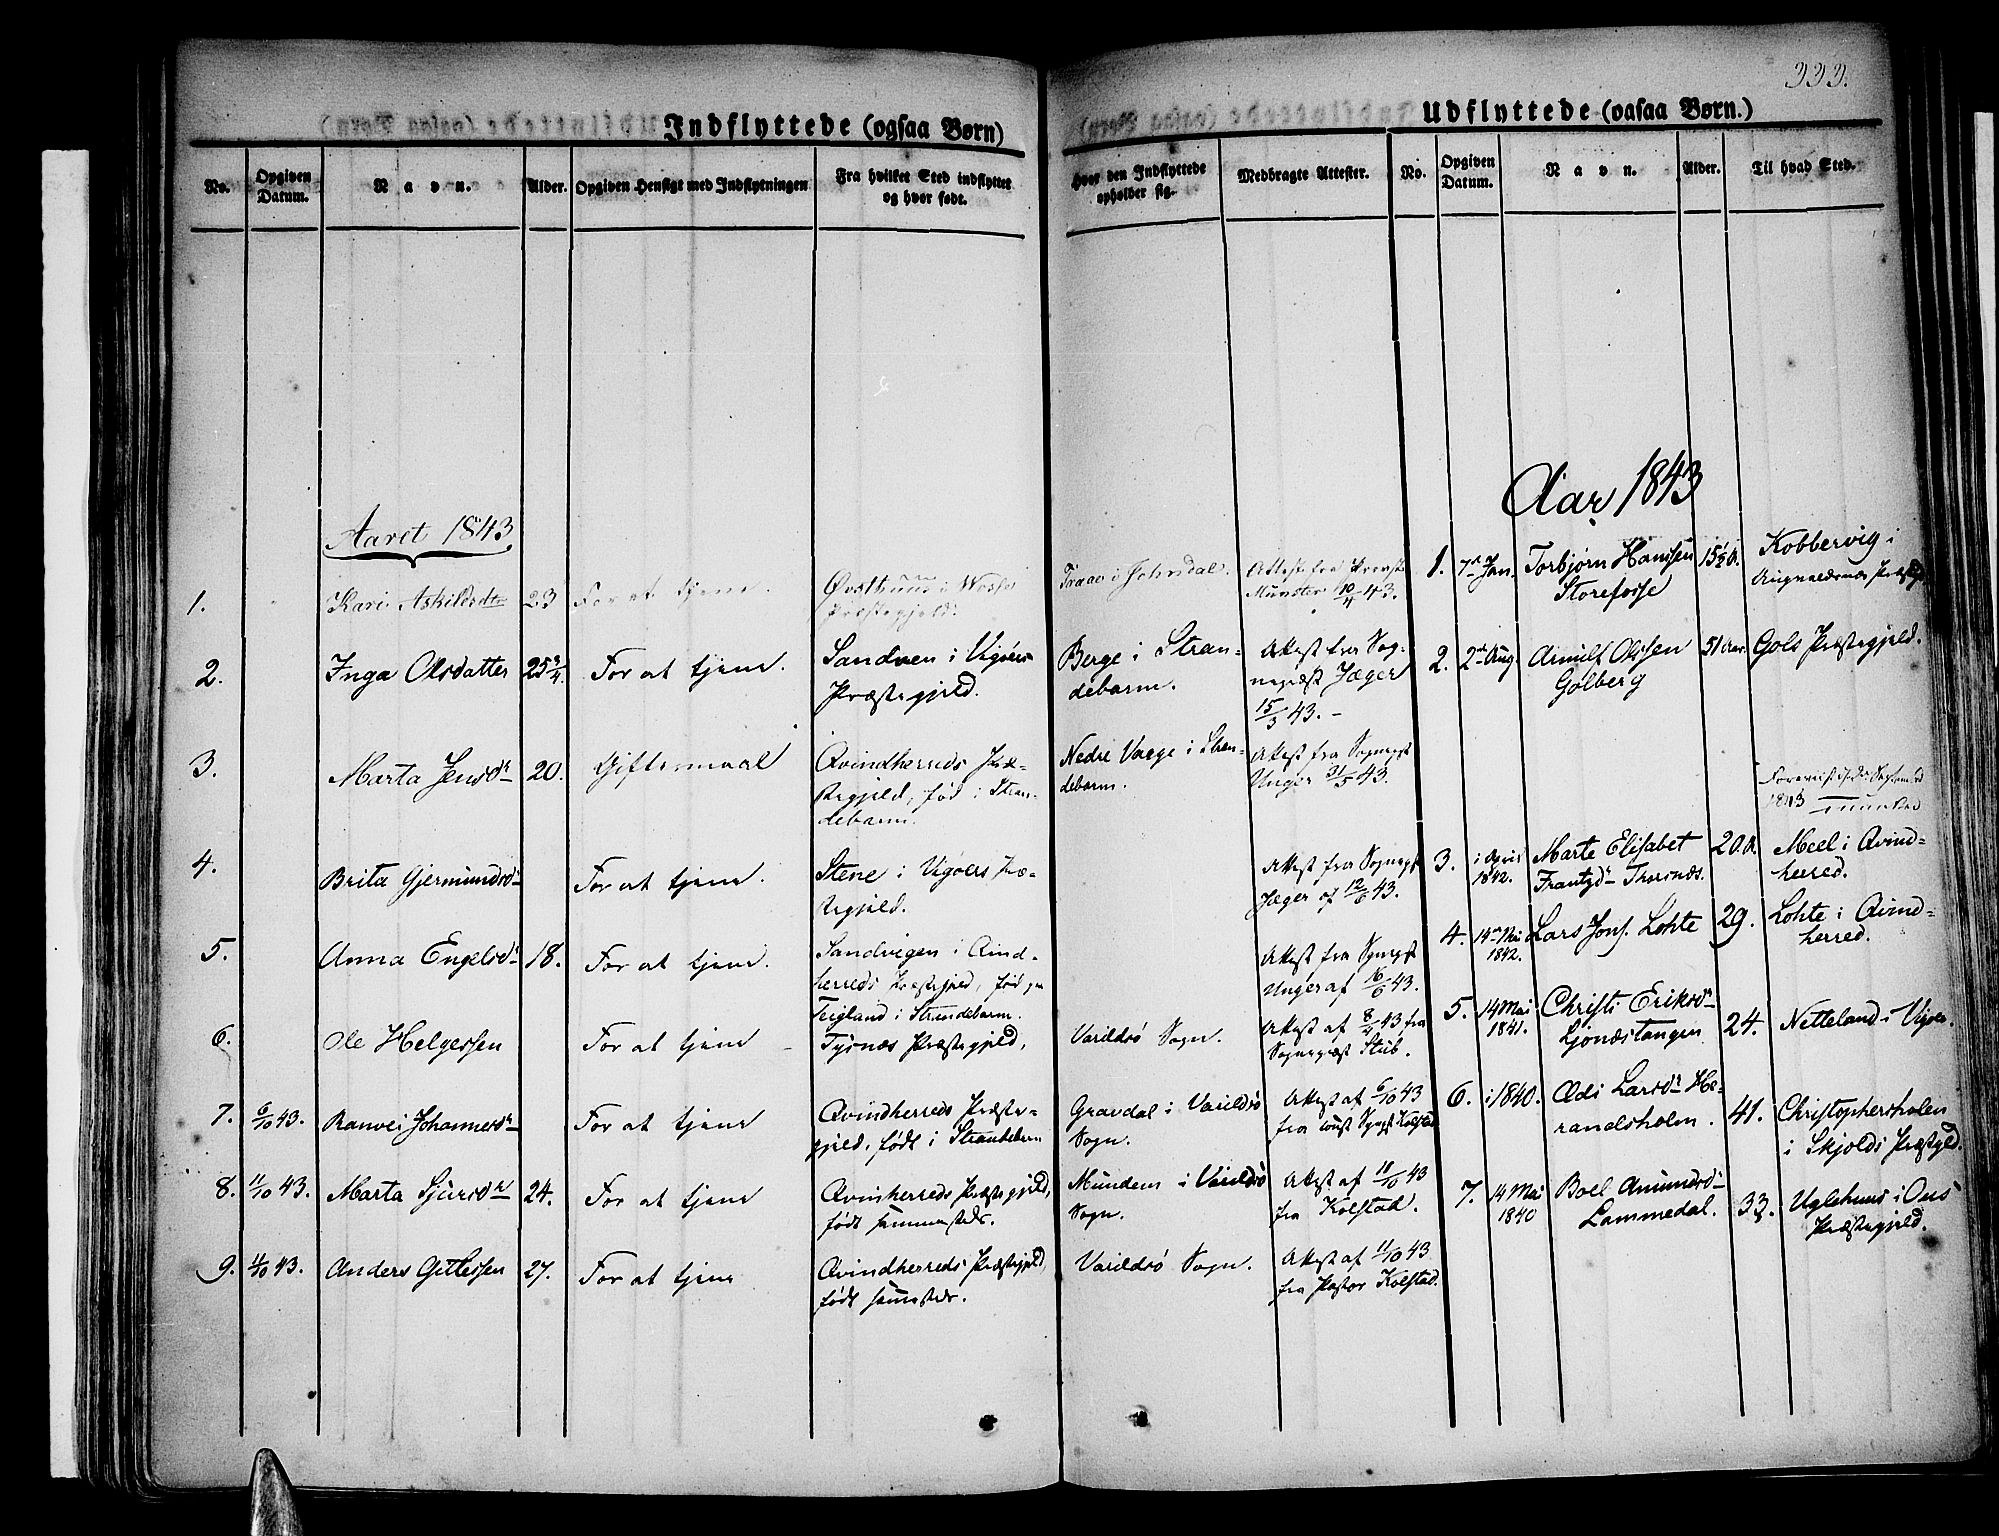 333.
Indflyttede (ogsaa Børn)
No.
Opgiven Datum.
Navn.
Alder.
Opgiven Hensigt med Indflytningen
Fra hvilket Sted indflyttet
og hvor født.
Hvor den Indflyttede
opholder sig.
Medbragte Attester.
Aaret 1843
1. Kari Askildsdtr 23 For at tjene. Øvsthuus i Vosse
Præstegjeld. i Jondal. Attest fra Provst
Münster 10/4 43.
2. Inga Olsdatter 25 3/4 For at tjene. Sandven i Vigøers
Præstegjeld. Berge i Stran-
debarm. Attest fra Sog-
nepræst Jæger
15/3 43. –
3. Marta Jensdr 20. Giftermaal Qvindherreds Præ-
stegjeld, fød i Stran-
debarm. Nedre Vaage i Stran-
debarm. Attest fra Sognepst
Unger 31/5 43.
4. Brita Gjermundsdr For at tjene. Stene i Vigøers Præ-
stegjeld. Attest fra Sognepst
Jæger af 12/6 43.
5. Anna Engelsdr 18. For at tjene. Sandvigen i Qvind-
herreds Præstegjeld, fød paa
Teigland i Strandebarm. Attest fra Sognepst
Unger af 16/6 43.
6. Ole Helgessen For at tjene – Tysnæs Præstegjeld, Varildsø Sogn. Attest af 8/4 43 fra
Sognepræst Stub.
7. 6/10 43. Ranvei Johannesdr For at tjene Qvindherreds Præste-
gjeld, født i Strandebarm Gravdal i Varildsø
Sogn. Attest af 6/10 43
fra const Sognpst Kolstad
8. 11/10 43. Marta Sjursdtr 24. For at tjene Qvinherreds Præstegjeld,
født sammesteds. Mundem i Varildsø
Sogn. Attest af 11/10 43
fra Kolstad.
9. 11/10 43. Anders Gitlessen 27. For at tjene Qvindherreds Præstegjeld,
født sammesteds. Varildsø Sogn. Attest af 11/10 43
fra Pastor Kolstad.
Udflyttede (ogsaa Børn.)
No.
Opgiven Datum.
Navn.
Alder.
Til hvad Sted.
Aar 1843
1. 7de Jan. Torbjørn Hanssen
Storefosse 15 1/2 A. Kobbervig i
Augvaldsnæs Præstegj
2. 2den Aug. Arnulf Olssen
Golberg 51 Aar. Gols Præstegjeld.
1843
3. i April
1842. Marte Elisabet
Frantzdr Thorsnæs. 20. A. Meel i Qvind-
herred.
4. 14de Mai
1842. Lars Jons. Lohte 29. Lohte i Qvind-
herred.
5. 14 Mai
1841. Christi Eriksdr
Ljonæstangen 24. Netteland i Vigøer.
6. i 1840. Ædi Larsdr He-
randsholm. 41. Christophersholen
i Skjolds Præstgjld.
7. 14 Mai
1840 Boel Amundsdr
Lammedal. 33. Uglehuus i Ous
Præstegjeld.